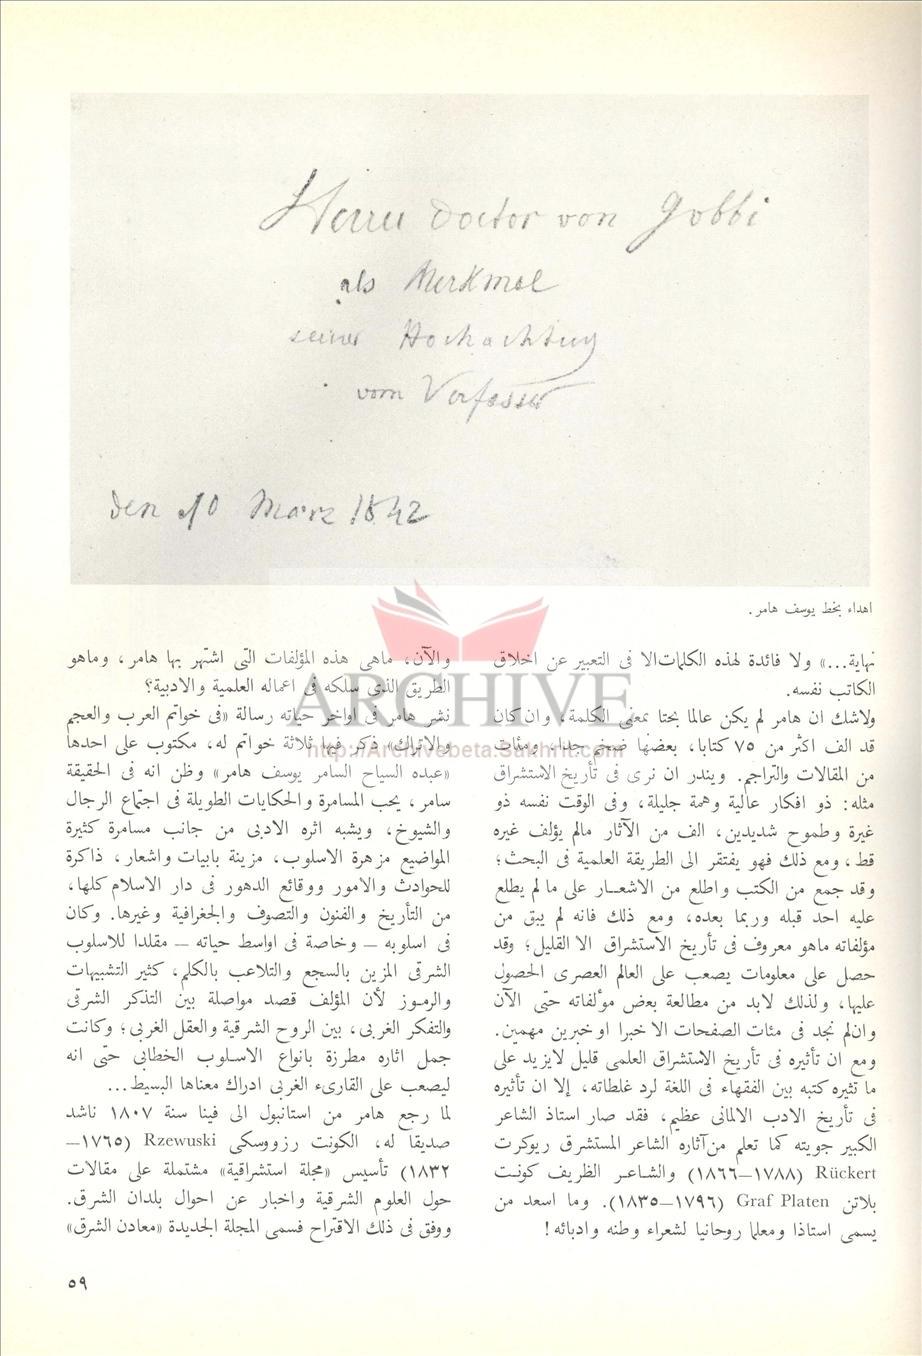 Herrn Doctor von Gobbi
als Merkmal
seiner Hochachtung
vom Verfasser
den 10 März 1842
اهداء بخط يوسف هامر.
نهاية...» ولا فائدة لهذه الكلمات الا فى التعبير عن اخلاق
الكاتب نفسه.
ولاشك ان هامر لم يكن عالما بحتا بمعنى الكلمة، وان كان
قد الف اكثر من ٧٥ كتابا، بعضها ضخم جدا، ومئات
من المقالات والتراجم. ويندر ان نرى فى تأريخ الاستشراق
مثله: ذو افكار عالية وهمة جليلة، وفى الوقت نفسه ذو
غيرة وطموح شديدين، الف من الآثار مالم يؤلف غيره
قط، ومع ذلك فهو يفتقر الى الطريقة العلمية فى البحث؛
وقد جمع من الكتب واطلع من الاشعار على ما لم يطلع
عليه احد قبله وربما بعده، ومع ذلك فانه لم يبق من
مؤلفاته ماهو معروف فى تأريخ الاستشراق الا القليل؛ وقد
حصل على معلومات يصعب على العالم العصرى الحصول
عليها، ولذلك لابد من مطالعة بعض مؤلفاته حتى الآن
وان لم نجد فى مئات الصفحات الا خبرا او خبرين مهمين.
ومع ان تأثيره فى تأريخ الاستشراق العلمى قليل لايزيد على
ما تثيره كتبه بين الفقهاء فى اللغة لرد غلطاته، إلا ان تأثيره
فى تأريخ الادب الالمانى عظيم، فقد صار استاذ الشاعر
الكبير جويته كما تعلم من آثاره الشاعر المستشرق ريوكرت
Rückert (١٧٨٨–١٨٦٦) والشاعر الظريف كونت
بلاتن Graf Platen (١٧٩٦–١٨٣٥). وما اسعد من
يسمى استاذا ومعلما روحانيا لشعراء وطنه وادبائه!
والآن، ماهى هذه المؤلفات التى اشتهر بها هامر، وماهو
الطريق الذى سلكه فى اعماله العلمية والادبية؟
نشر هامر فى اواخر حياته رسالة «فى خواتم العرب والعجم
والاتراك» ذكر فيها ثلاثة خواتم له، مكتوب على احدها
«عبده السياح السامر يوسف هامر» وظن انه فى الحقيقة
سامر، يحب المسامرة والحكايات الطويلة فى اجتماع الرجال
والشيوخ، ويشبه اثره الادبى من جانب مسامرة كثيرة
المواضيع مزهرة الاسلوب، مزينة بابيات واشعار، ذاكرة
للحوادث والامور ووقائع الدهور فى دار الاسلام كلها،
من التأريخ والفنون والتصوف والجغرافية وغيرها. وكان
فى اسلوبه – وخاصة فى اواسط حياته – مقلدا للاسلوب
الشرقى المزين بالسجع والتلاعب بالكلم، كثير التشبيهات
والرموز لأن المؤلف قصد مواصلة بين التذكر الشرقى
والتفكر الغربى، بين الروح الشرقية والعقل الغربى؛ وكانت
جمل اثاره مطرزة بانواع الاسلوب الخطابى حتى انه
ليصعب على القارىء الغربى ادراك معناها البسيط...
لما رجع هامر من استانبول الى فينا سنة ١٨٠٧ ناشد
صديقا له، الكونت رزووسكى Rzewuski (١٧٦٥–
١٨٣٢) تأسيس «مجلة استشراقية» مشتملة على مقالات
حول العلوم الشرقية واخبار عن احوال بلدان الشرق.
ووفق فى ذلك الاقتراح فسمى المجلة الجديدة «معادن الشرق»
٥٩
ARCHIVE
http://Archivebeta.Sakhrit.com